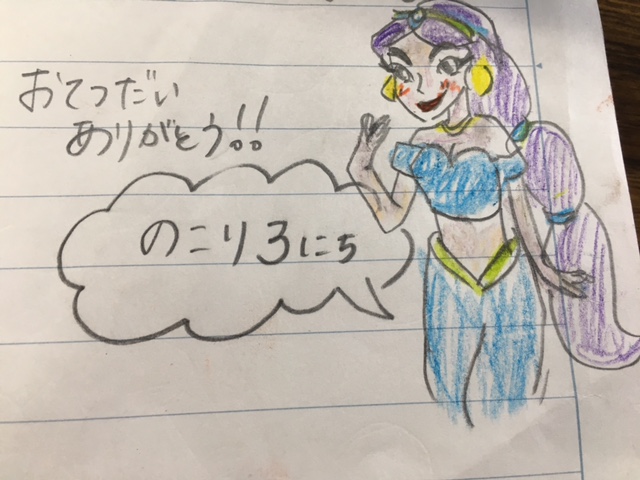 おてつだい
ありがとう!!
のこり3にち